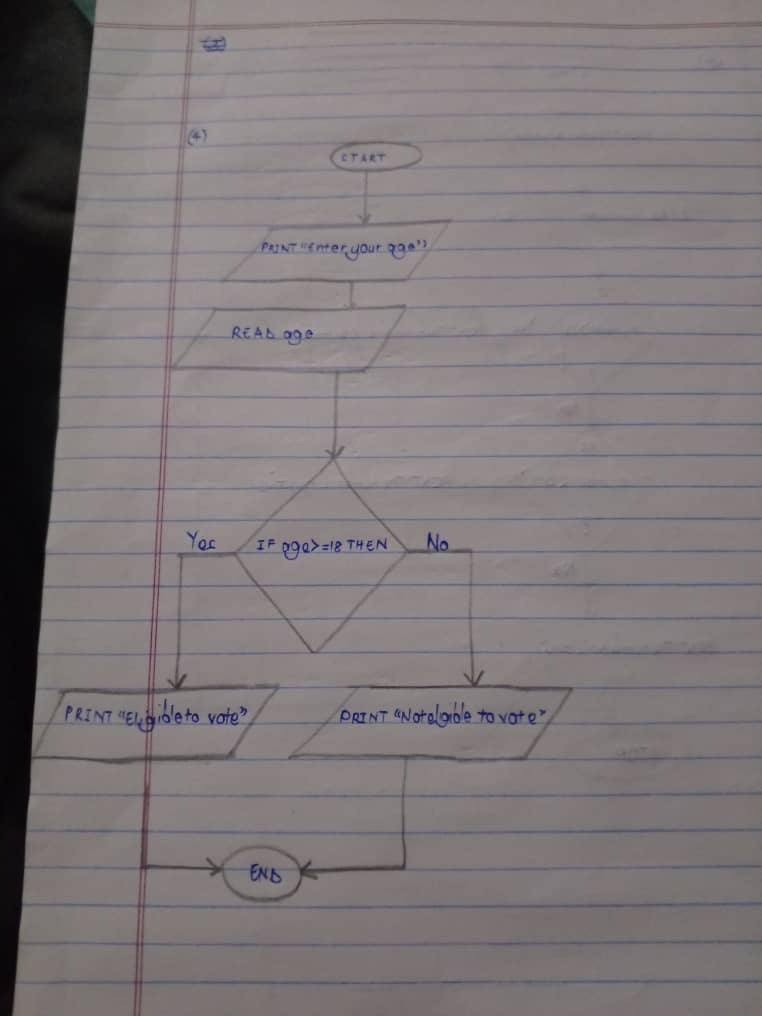 (4)
START
PRINT "Enter your age"
READ age
Yes
IF age>=18 THEN
No
PRINT "Eligible to vote"
PRINT "Not elgible to vote"
END